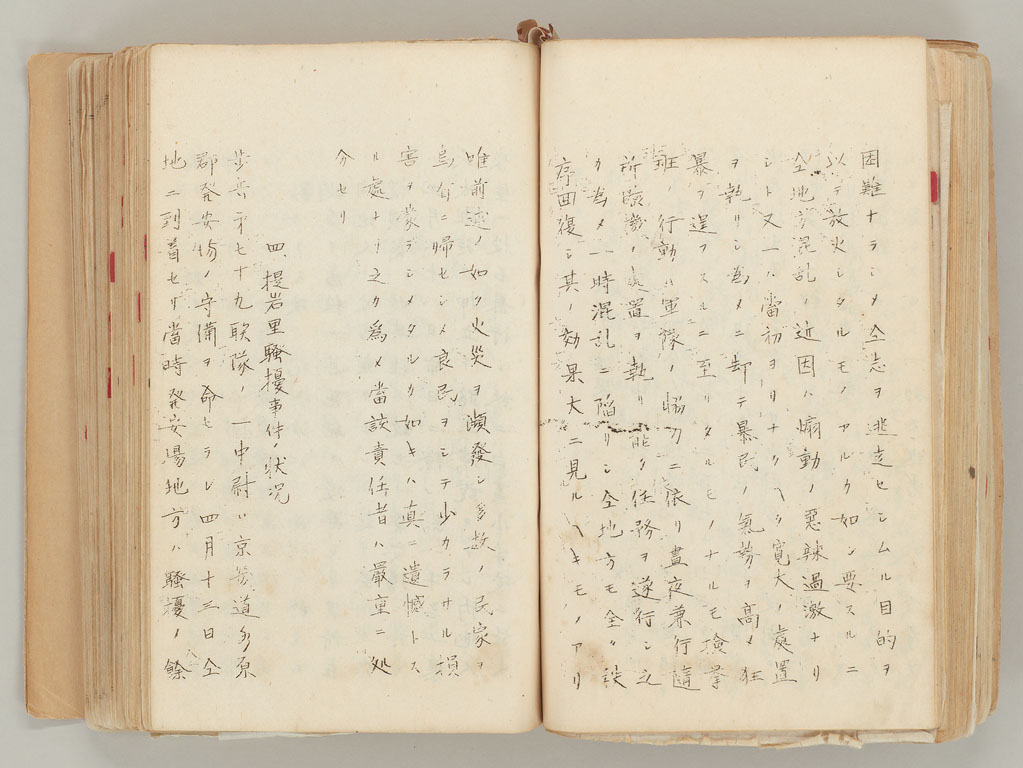 困難ナラシメ仝志ヲ逃走セシムル目的ヲ
以テ放火シタルモノアルカ如シ要スルニ
仝地方混乱ノ近因ハ煽動ノ悪辣過激ナリ
シト又一ハ當初ヨリナルヘク寛大ノ處置
ヲ執リシ為メニ却テ暴民ノ氣勢ヲ高メ狂
暴ヲ逞フスルニ至リタルモノナルモ検挙
班ノ行動ハ軍隊ノ協力ニ依リ晝夜兼行随
所臨機ノ處置ヲ執リ能ク任務ヲ遂行シ之
カ為メ一時混乱ニ陥リシ仝地方モ全ク秩
序回復シ其ノ効果大ニ見ルヘキモノアリ
唯前述ノ如ク火災ヲ頻發シ多数ノ民家ヲ
烏有ニ帰セシメ良民ヲシテ少カラサル損
害ヲ蒙ラシメタルカ如キハ真ニ遺憾トス
ル處ナリ之カ為メ當該責任者ハ嚴重ニ処
分セリ
四、提岩里騒擾事件ノ状況
歩兵才七十九联隊ノ一中尉ハ京畿道水原
郡発安場ノ守備ヲ命セラレ四月十三日仝
地ニ到着セリ當時発安場地方ハ騒擾ノ餘